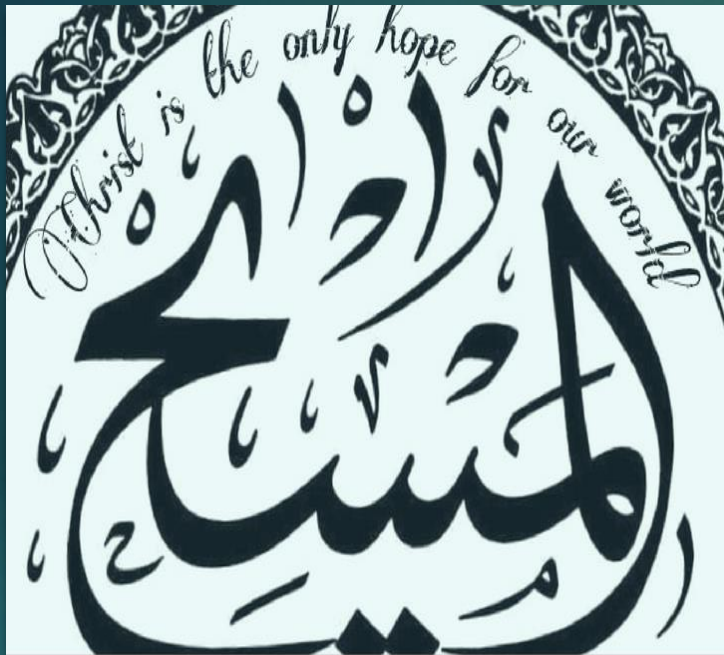 Christ is the only hope for our world
المسيح